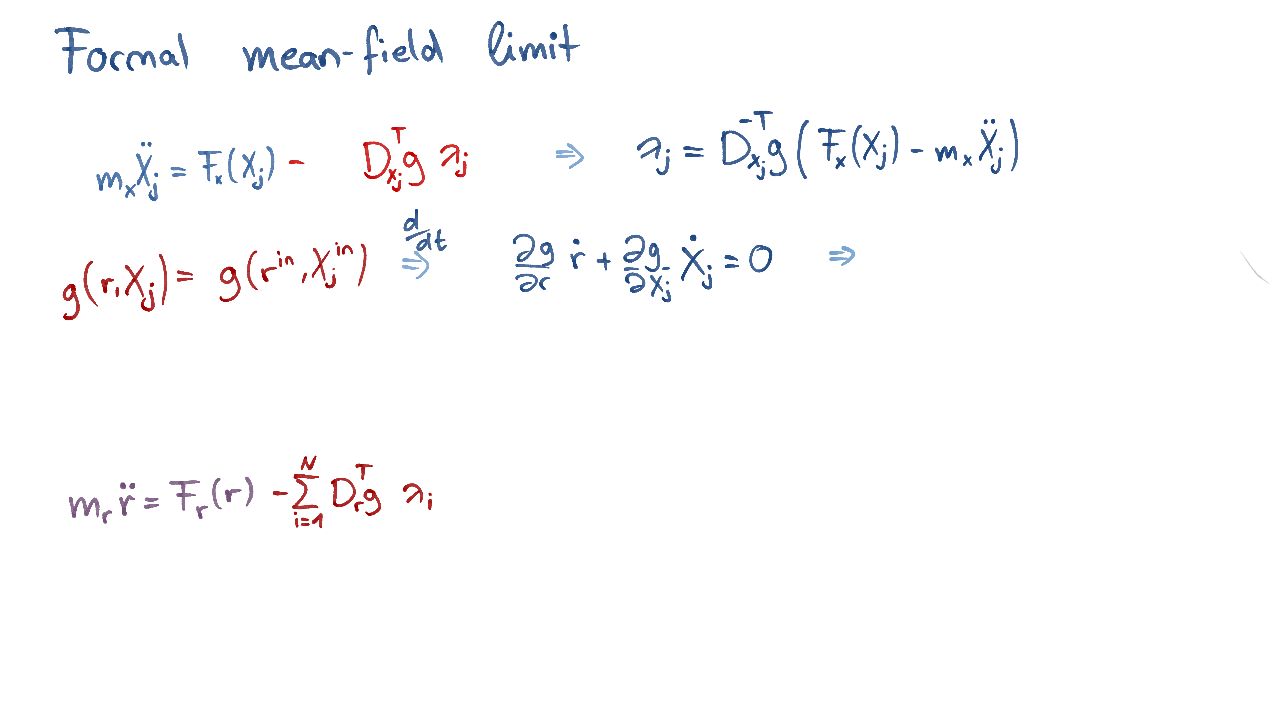 Formal mean-field limit
m_x Ẍ_j = F_x(X_j) - D_{x_j}^T g λ_j ⇒ λ_j = D_{x_j}^{-T} g (F_x(X_j) - m_x Ẍ_j)
g(r, X_j) = g(r^{in}, X_j^{in}) ⇒ d/dt ∂g/∂r ṙ + ∂g/∂X_j Ẋ_j = 0 ⇒
m_r r̈ = F_r(r) - ∑_{i=1}^N D_r^T g λ_i